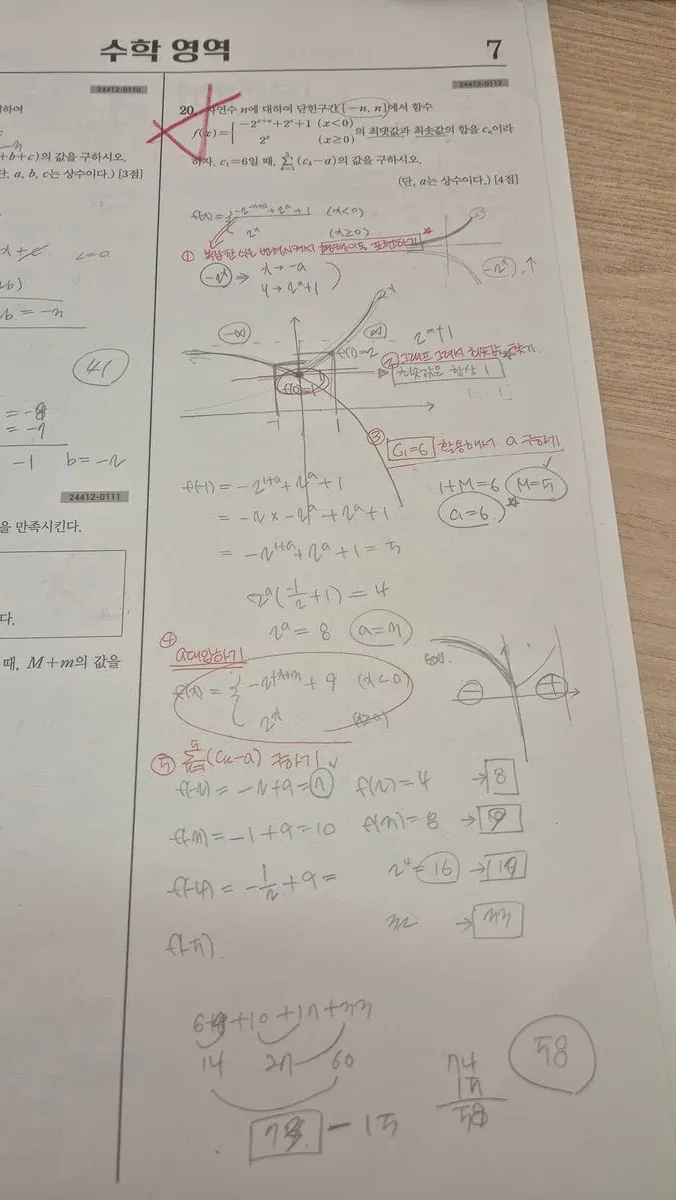 수학 영역
7
24412-0110
하여
+b+c)의 값을 구하시오.
단, a, b, c는 상수이다.) [3점]
c=0
2b)
2b = -n
41
= -8
= -7
-1 b=-2
24412-0111
을 만족시킨다.
다.
때, M+m의 값을
24412-0112
20. 자연수 n에 대하여 닫힌구간 [-n, n]에서 함수
f(x)={ -2^{x+a}+2^a+1 (x<0)
2^x (x≥0) 의 최댓값과 최솟값의 합을 c_n이라
하자. c₁=6일 때, Σ(c_k-a)의 값을 구하시오.
(단, a는 상수이다.) [4점]
f(x)={ -2^{x+a}+2^a+1 (x<0)
2^x (x≥0)
①
-2^x ⇒ x → -a
y → 2^a+1
-2^x ↑
2^x
-∞ ∞
2^a+1
f(1)=2
② 그래프 그려서 최솟값 찾기
최솟값은 항상 1
f(0)=1
-1 1
③ C₁=6 활용해서 a 구하기
f(-1) = -2^{-1+a}+2^a+1
1+M=6 M=5
= -2^{-1+a}+2^a+1=5
2^a(-1/2+1)=4
2^a=8 a=3
④
a대입하기
f(x)={ -2^{x+3}+9 (x<0)
2^x (x≥0)
⊖ ⊕
⑤ Σ(C_k-a) 구하기
f(-2)= -2+9=7 f(2)=4 → 8
f(-3)= -1+9=10 f(3)=8 → 9
f(-4)= -1/2+9= 2^4=16 → 17
32 → 33
f(-5)
+10+17+33
14 27 60
73 - 15
74
15
58
58